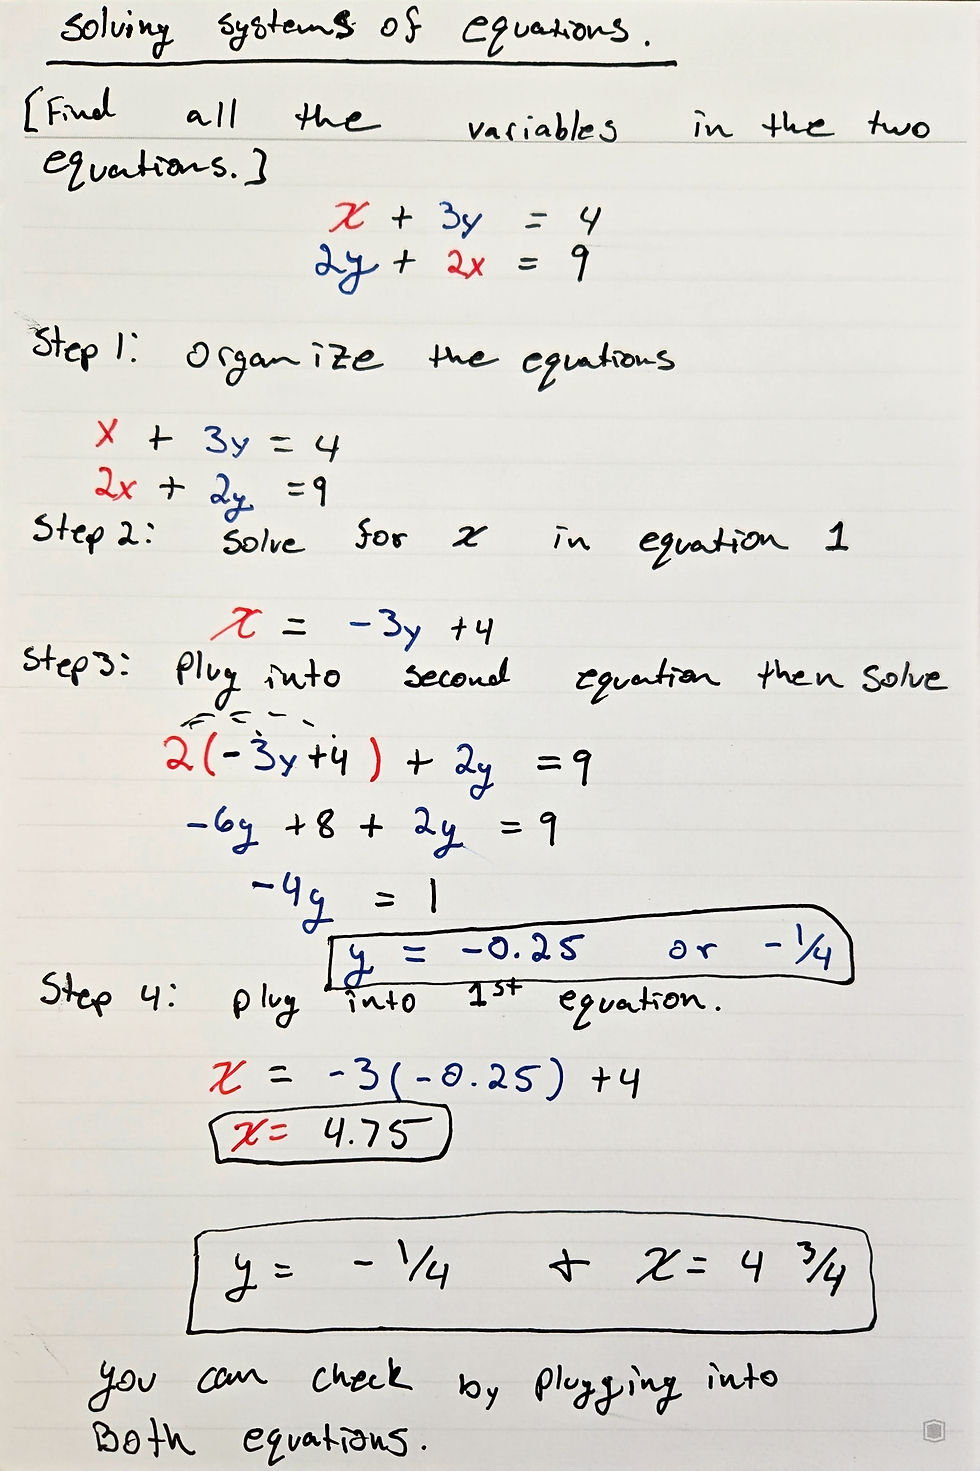 Solving systems of equations.
[Find all the variables in the two
equations.]
x + 3y = 4
2y + 2x = 9
Step 1: Organize the equations
x + 3y = 4
2x + 2y = 9
Step 2: Solve for x in equation 1
x = -3y + 4
Step 3: Plug into second equation then solve
2(-3y+4) + 2y = 9
-6y + 8 + 2y = 9
-4y = 1
y = -0.25 or -1/4
Step 4: plug into 1st equation.
x = -3(-0.25) + 4
x = 4.75
y = -1/4 + x = 4 3/4
You can check by plugging into
Both equations.